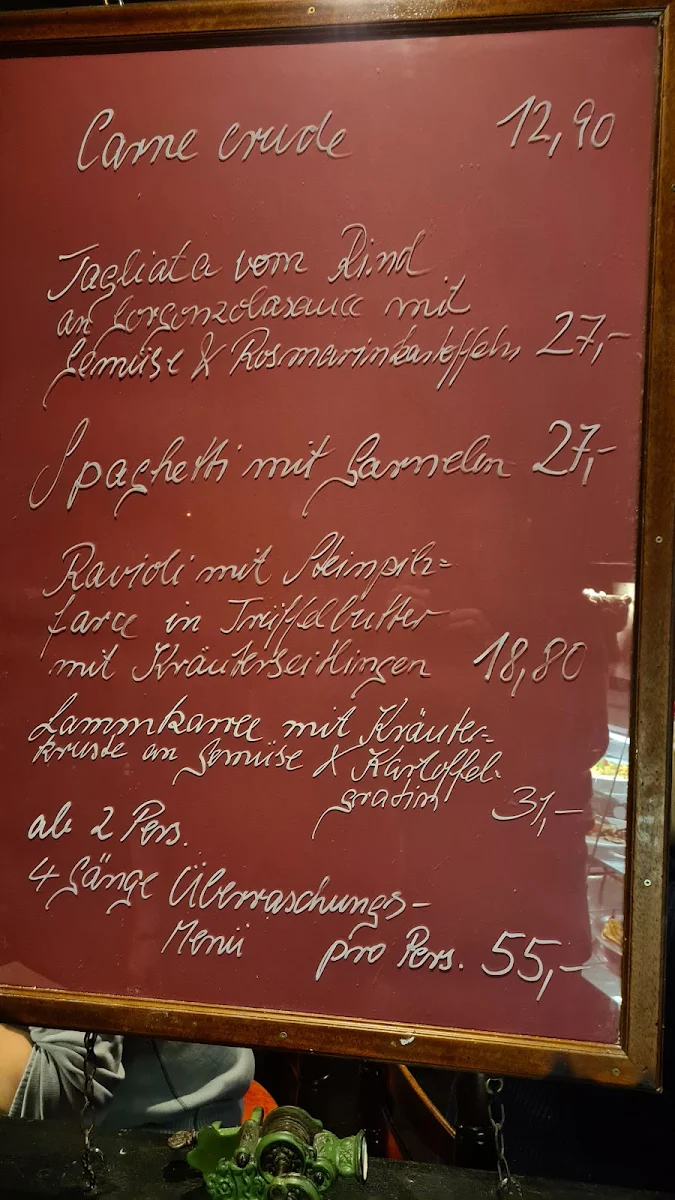 Carne crude 12,90
Tagliata vom Rind
an Gorgonzolasauce mit
Gemüse & Rosmarinkartoffeln 27,-
Spaghetti mit Garnelen 27,-
Ravioli mit Steinpilz-
farce in Trüffelbutter
mit Kräuterseitlingen 18,80
Lammkarree mit Kräuter-
kruste an Gemüse & Kartoffel-
gratin 31,-
ab 2 Pers.
4 Gänge Überraschungs-
Menü pro Pers. 55,-